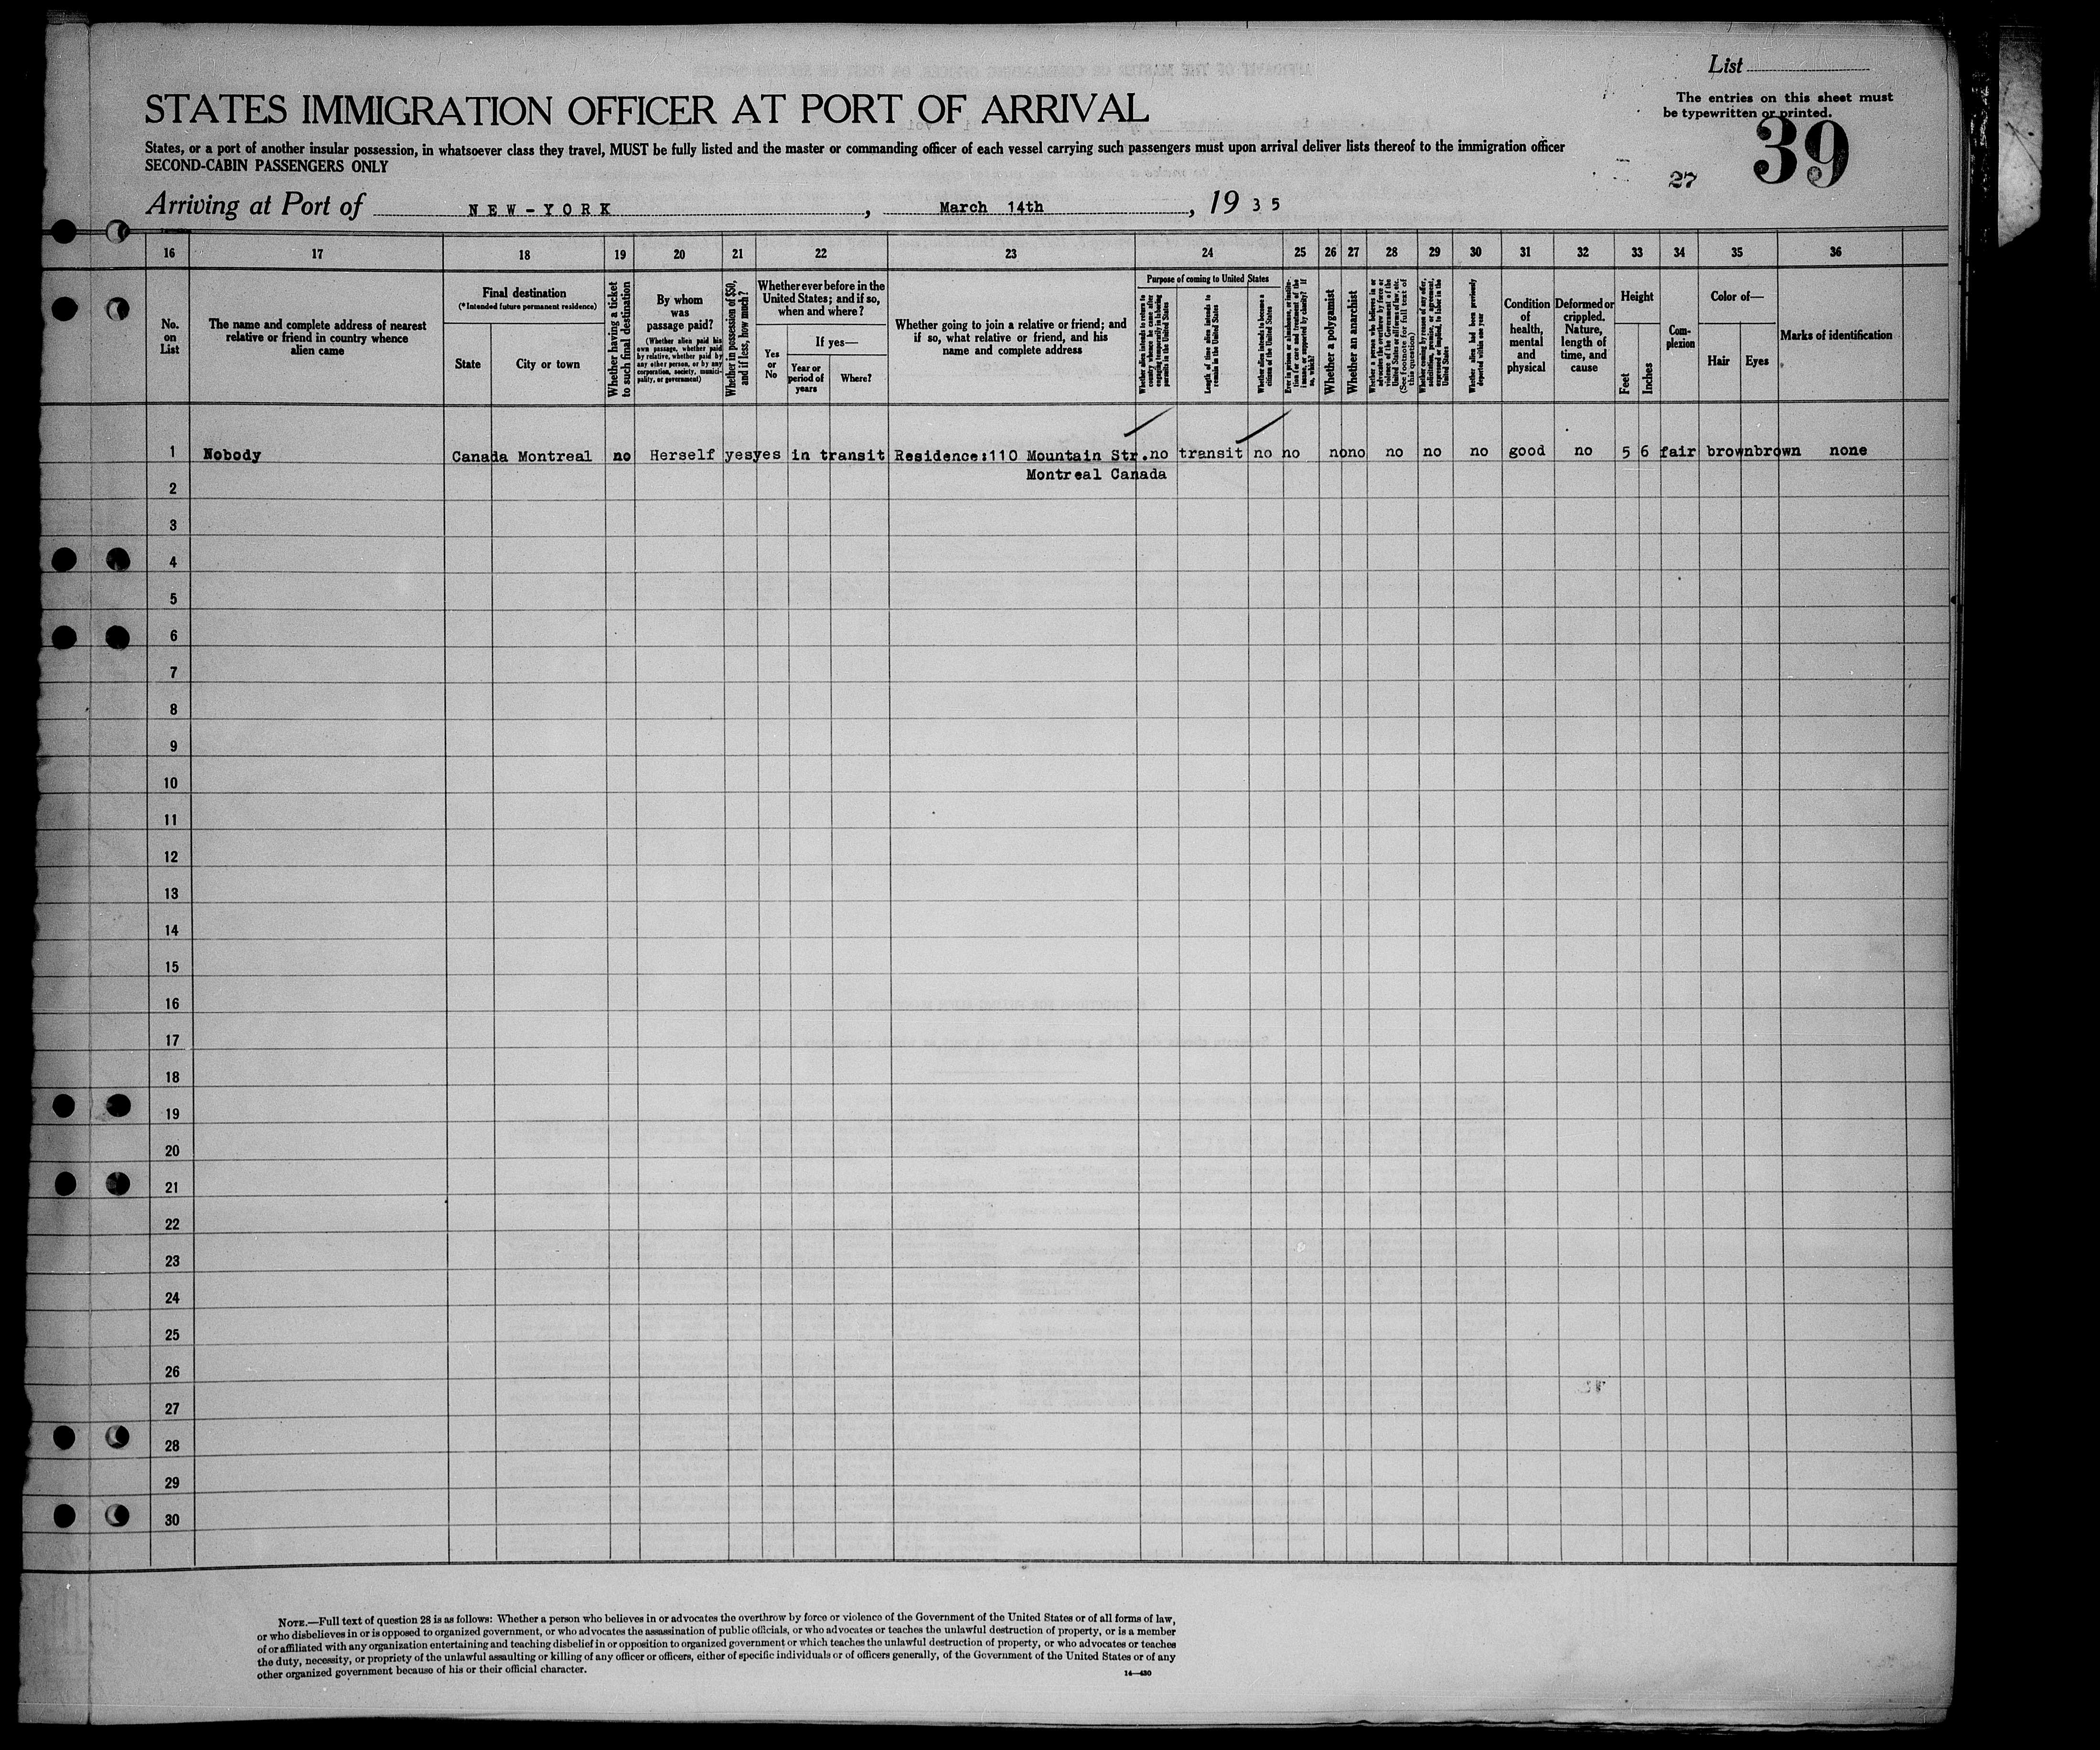 List
The entries on this sheet must
be typewritten or printed.
39
27
STATES IMMIGRATION OFFICER AT PORT OF ARRIVAL
States, or a port of another insular possession, in whatsoever class they travel, MUST be fully listed and the master or commanding officer of each vessel carrying such passengers must upon arrival deliver lists thereof to the immigration officer
SECOND-CABIN PASSENGERS ONLY
Arriving at Port of NEW-YORK, March 14th, 1935
16 17 18 19 20 21 22 23 24 25 26 27 28 29 30 31 32 33 34 35 36
No. on List
The name and complete address of nearest
relative or friend in country whence
alien came
Final destination
(*Intended future permanent residence)
State
City or town
Whether having a ticket
to such final destination
By whom
was
passage paid?
(Whether alien paid his
own passage, whether paid
by relative, whether paid by
any other person, or by any
corporation, society, munici-
pality, or government)
Whether in possession of $50,
and if less, how much?
Whether ever before in the
United States; and if so,
when and where?
Yes
or
No
If yes—
Year or
period of
years
Where?
Whether going to join a relative or friend; and
if so, what relative or friend, and his
name and complete address
Purpose of coming to United States
Whether alien intends to return to
country whence he came after
engaging temporarily in laboring
pursuits in the United States
Length of time alien intends to
remain in the United States
Whether alien intends to become a
citizen of the United States
Ever in prison or almshouse, or institu-
tion for care and treatment of the
insane, or supported by charity? If
so, which?
Whether a polygamist
Whether an anarchist
Whether a person who believes in or
advocates the overthrow by force or
violence of the Government of the
United States or all forms of law, etc.
(See footnote for full text of
this question)
Whether coming by reason of any offer,
solicitation, promise, or agreement,
expressed or implied, to labor in the
United States
Whether alien had been previously
deported within one year
Condition
of
health,
mental
and
physical
Deformed or
crippled.
Nature,
length of
time, and
cause
Height
Feet
Inches
Com-
plexion
Color of—
Hair
Eyes
Marks of identification
1 Nobody Canada Montreal no Herself yes yes in transit Residence:110 Mountain Str. no transit no no no no no no no good no 5 6 fair brown brown none
Montreal Canada
2
3
4
5
6
7
8
9
10
11
12
13
14
15
16
17
18
19
20
21
22
23
24
25
26
27
28
29
30
NOTE.—Full text of question 28 is as follows: Whether a person who believes in or advocates the overthrow by force or violence of the Government of the United States or of all forms of law,
or who disbelieves in or is opposed to organized government, or who advocates the assassination of public officials, or who advocates or teaches the unlawful destruction of property, or is a member
of or affiliated with any organization entertaining and teaching disbelief in or opposition to organized government or which teaches the unlawful destruction of property, or who advocates or teaches
the duty, necessity, or propriety of the unlawful assaulting or killing of any officer or officers, either of specific individuals or of officers generally, of the Government of the United States or of any
other organized government because of his or their official character.
14—430